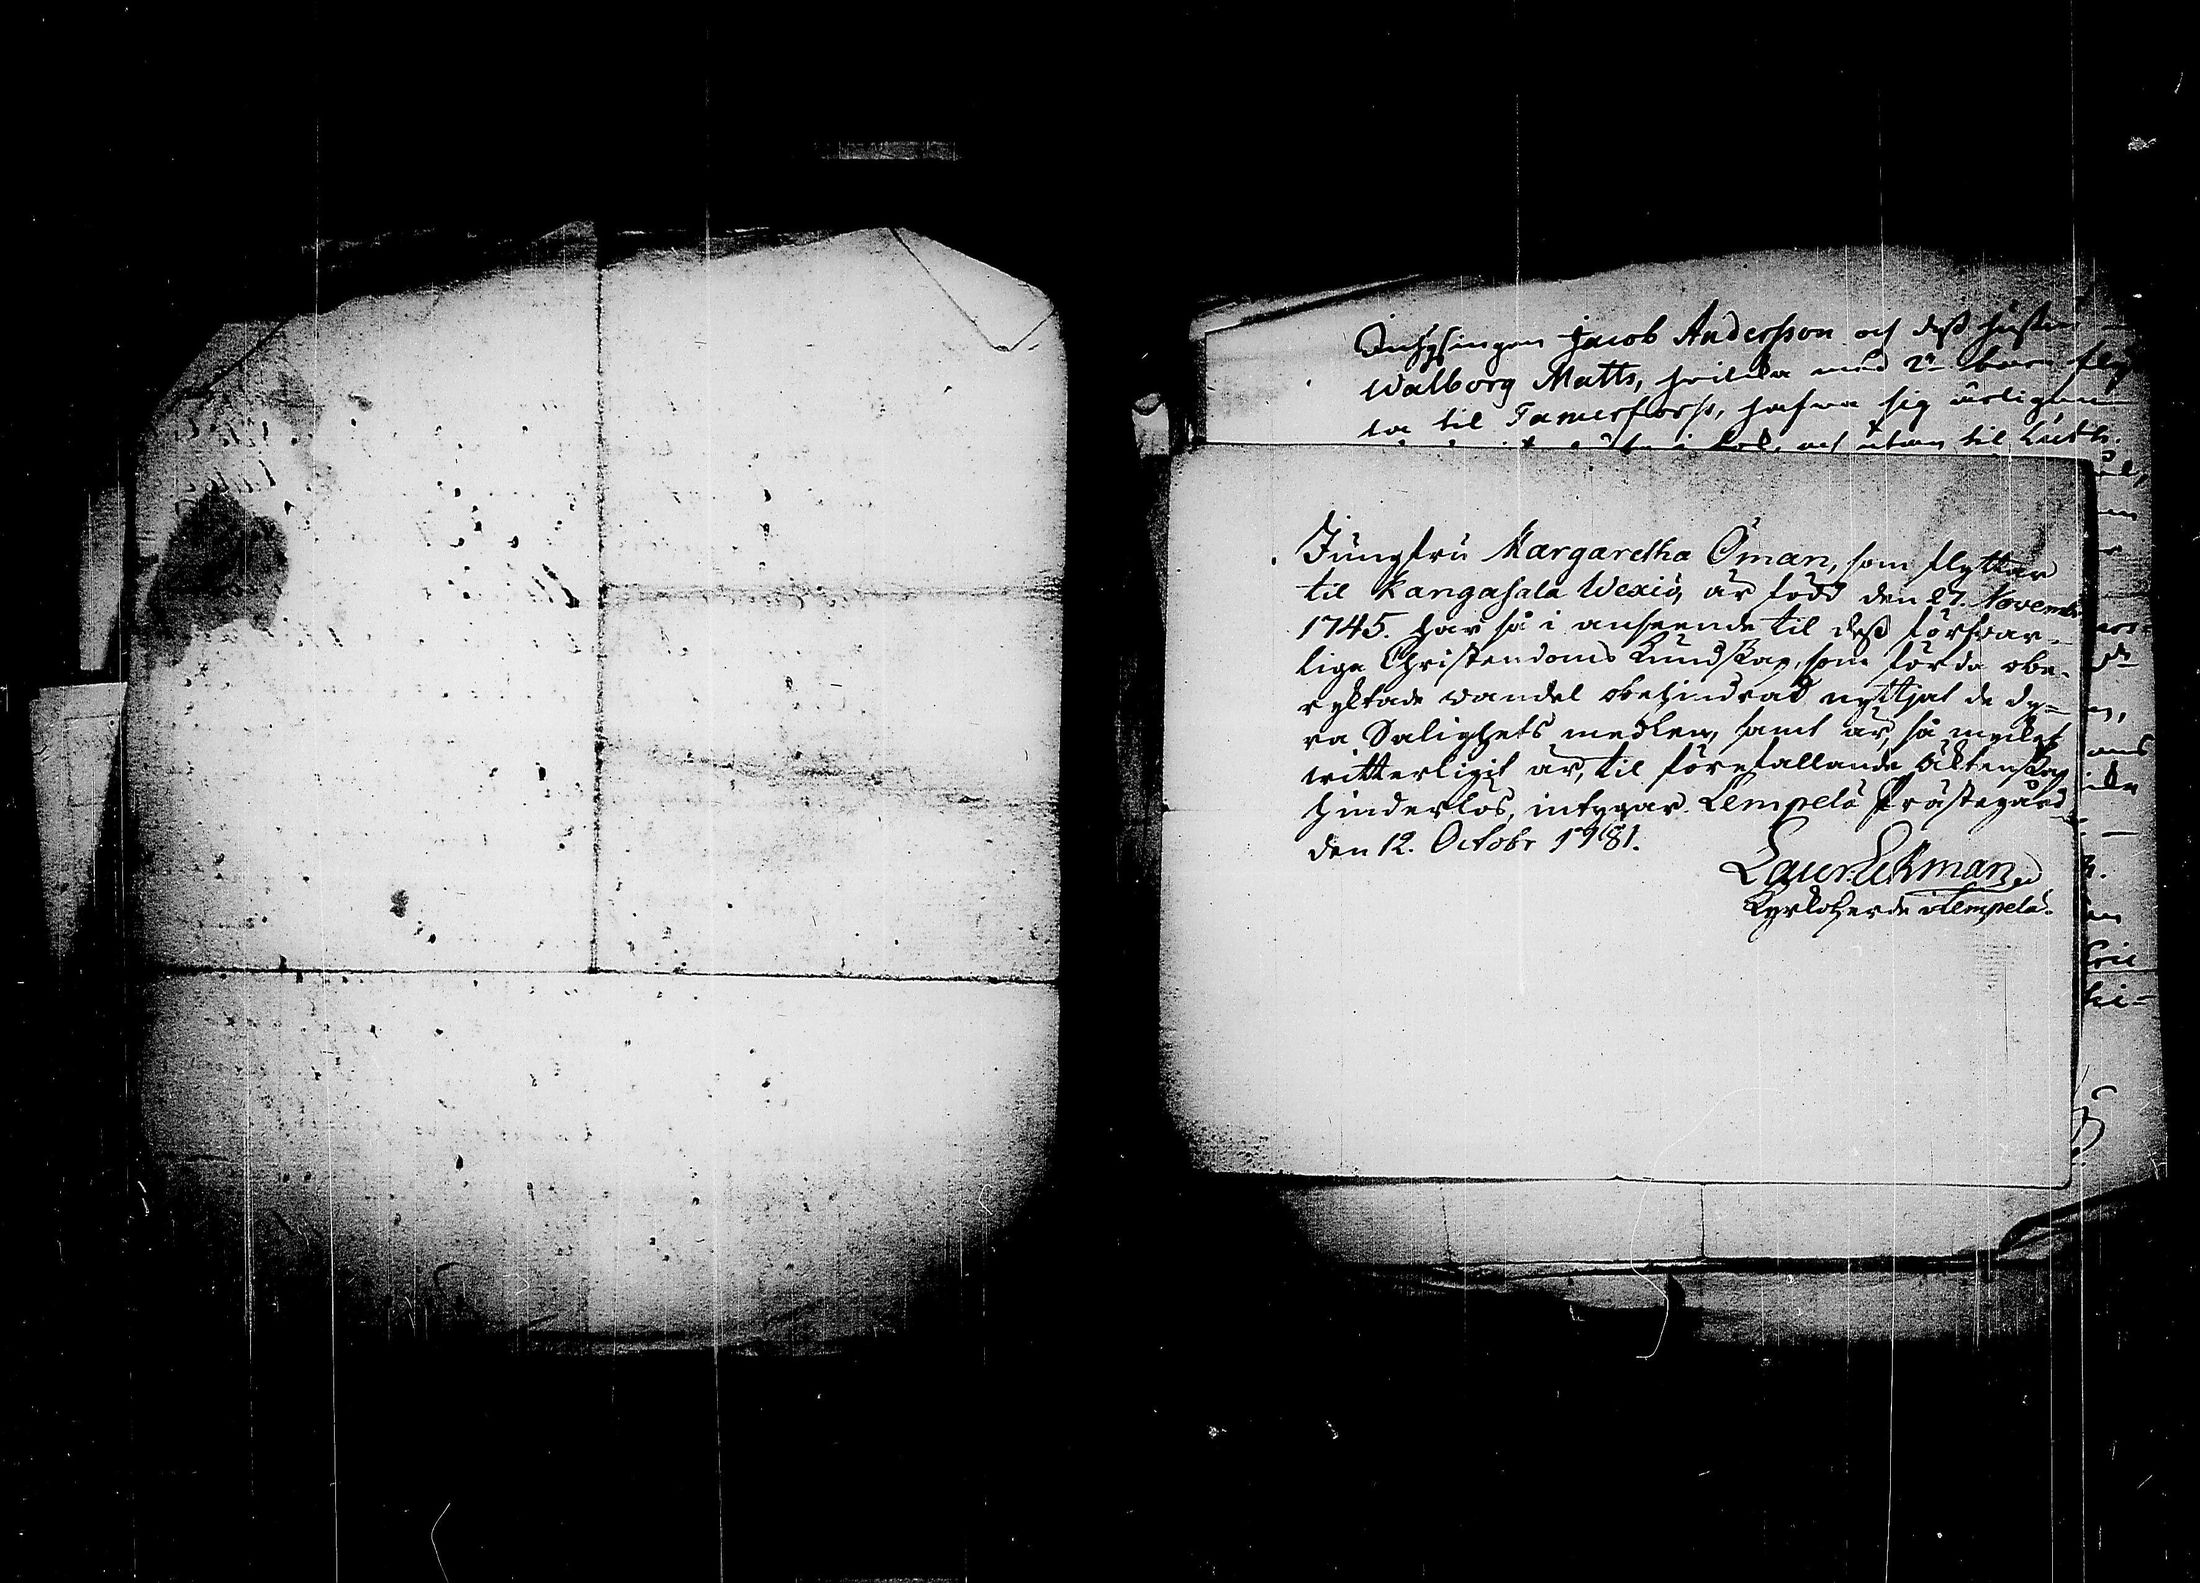 Inhysingen Jacob Andersson och dess hustru
Walborg Matts, hvilka med 2ne barn flyt
ta til Tamerfors, hafva sig ärligen
och utan til Luth.
Jungfru Margaretha Öman, som flyttar
til Kangasala Wexiö, är född den 27. Novembr
1745. har så i anseende til dess försvar-
liga Christendoms Kundskap, som förda obe-
ryktade vandel obehindrat nyttjat de dy-
ra Salighets medlen, samt är, så mycket
witterligit är, til förefallande äktenskap
hinderlös, intygar. Lempelä Prästegård
den 12. Octobr 1781.
Laur. Eekman
Kyrkoherde i Lempelä.